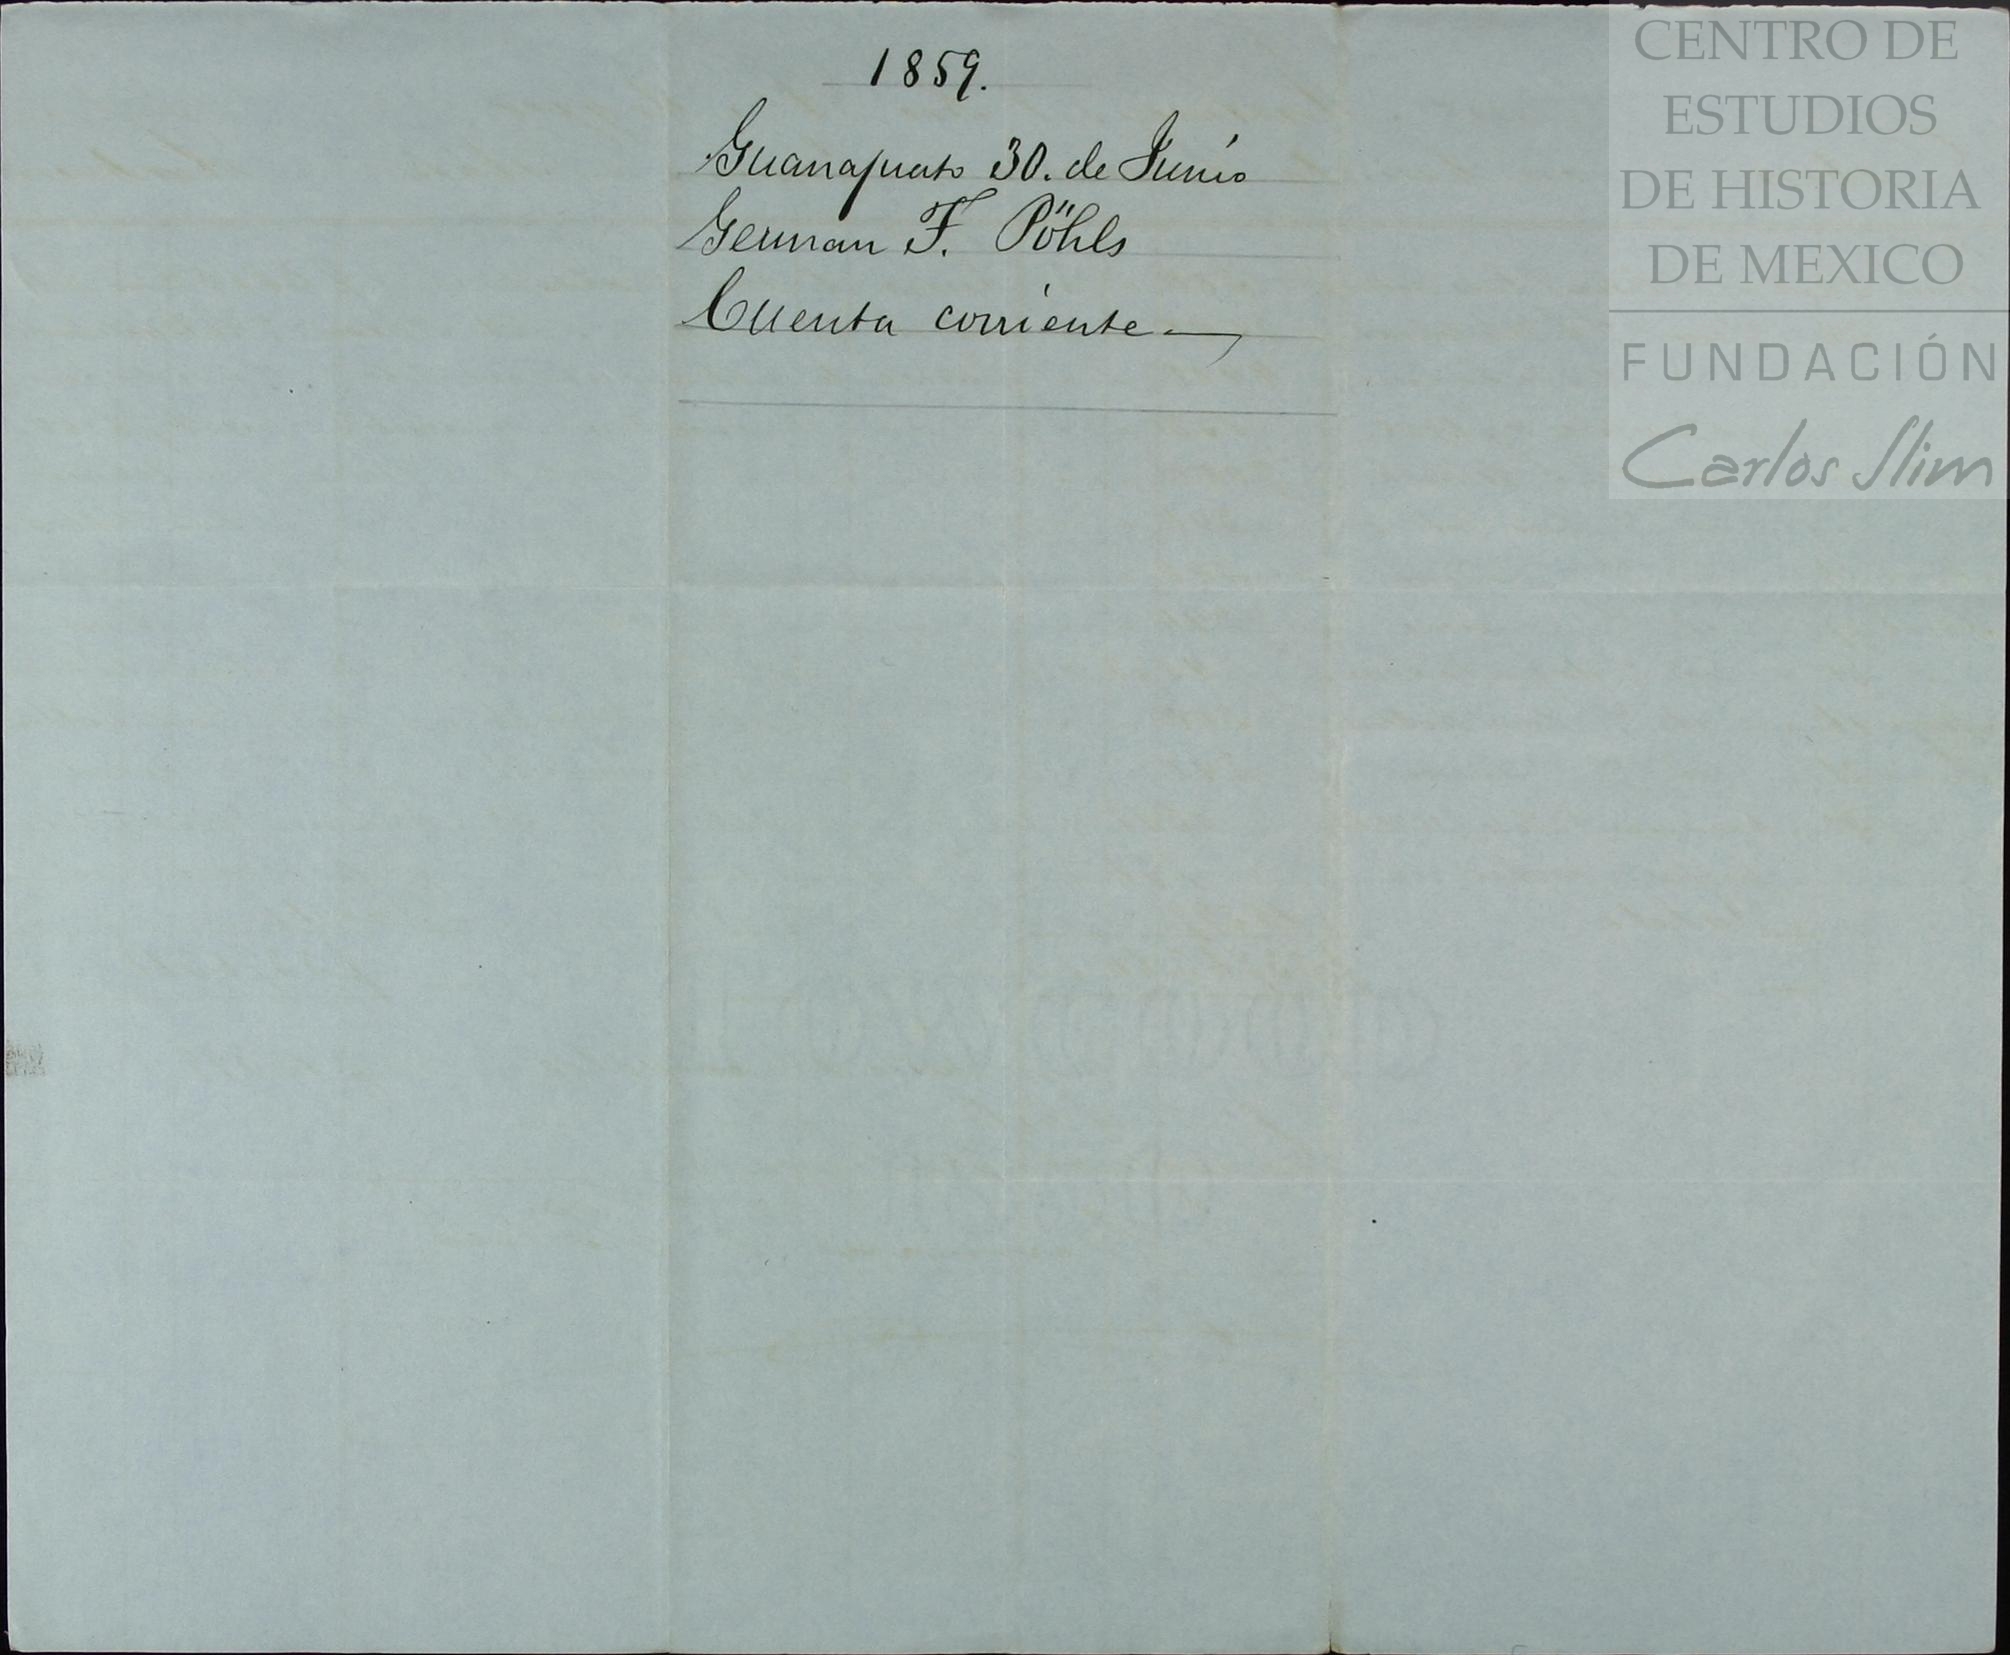 1859.
Guanajuato 30. de Junio
German F. Pöhls
Cuenta corriente
CENTRO DE
ESTUDIOS
DE HISTORIA
DE MEXICO
FUNDACIÓN
Carlos Slim